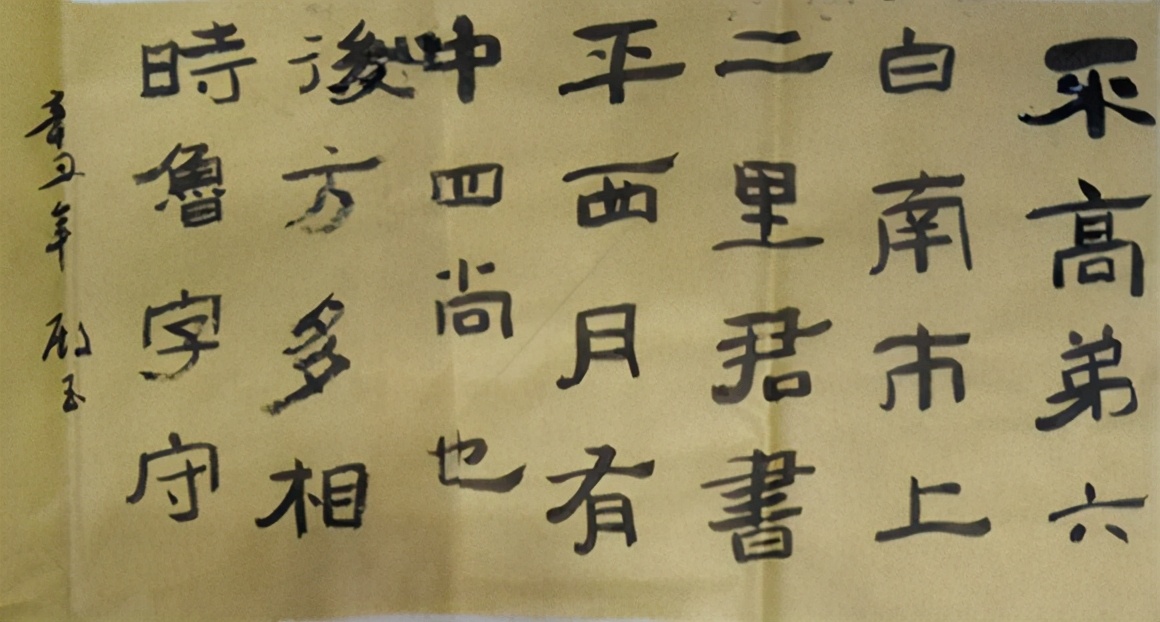 高弟六
白南市上
二里君書
平西月有
中四尚也
後方多相
時魯字守
辛丑年 玉